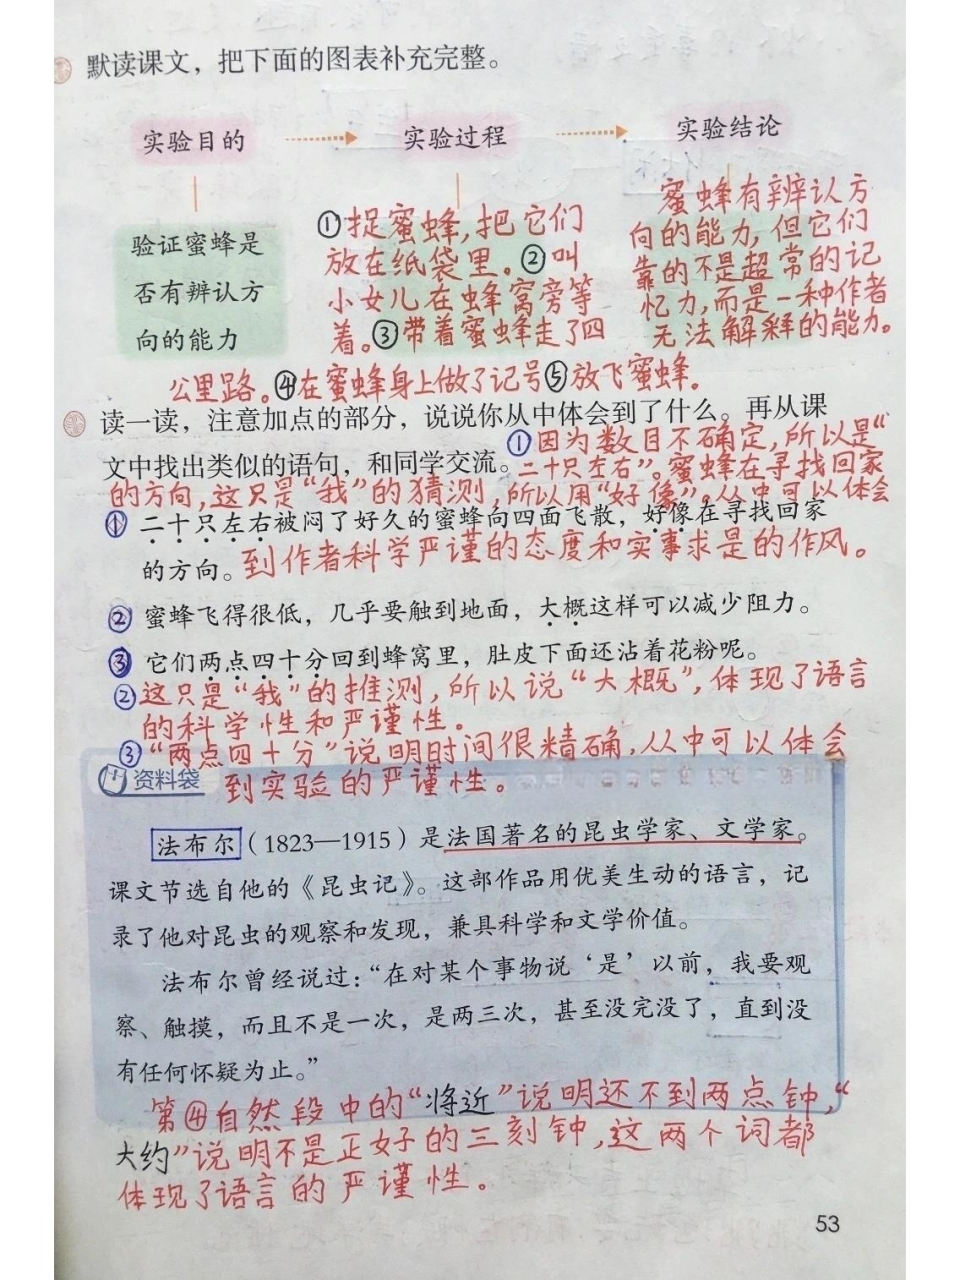 默读课文，把下面的图表补充完整。
实验目的
实验过程
实验结论
验证蜜蜂是
否有辨认方
向的能力
①捉蜜蜂，把它们
放在纸袋里。②叫
小女儿在蜂窝旁等
着。③带着蜜蜂走了四
公里路。④在蜜蜂身上做了记号⑤放飞蜜蜂.
蜜蜂有辨认方
向的能力，但它们
靠的不是超常的记
忆力，而是一种作者
无法解释的能力。
读一读，注意加点的部分，说说你从中体会到了什么。再从课
文中找出类似的语句，和同学交流。
①因为数目不确定，所以是“
二十只左右”。蜜蜂在寻找回家
的方向，这只是“我”的猜测，所以用“好像”。从中可以体会
到作者科学严谨的态度和实事求是的作风。
①二十只左右被闷了好久的蜜蜂向四面飞散，好像在寻找回家
的方向。
②蜜蜂飞得很低，几乎要触到地面，大概这样可以减少阻力。
③它们两点四十分回到蜂窝里，肚皮下面还沾着花粉呢。
②这只是“我”的推测，所以说“大概”，体现了语言
的科学性和严谨性。
③“两点四十分”说明时间很精确，从中可以体会
到实验的严谨性。
资料袋
法布尔（1823—1915）是法国著名的昆虫学家、文学家。
课文节选自他的《昆虫记》。这部作品用优美生动的语言，记
录了他对昆虫的观察和发现，兼具科学和文学价值。
法布尔曾经说过：“在对某个事物说‘是’以前，我要观
察、触摸，而且不是一次，是两三次，甚至没完没了，直到没
有任何怀疑为止。”
第④自然段中的“将近”说明还不到两点钟，“
大约”说明不是正好的三刻钟，这两个词都
体现了语言的严谨性。
53